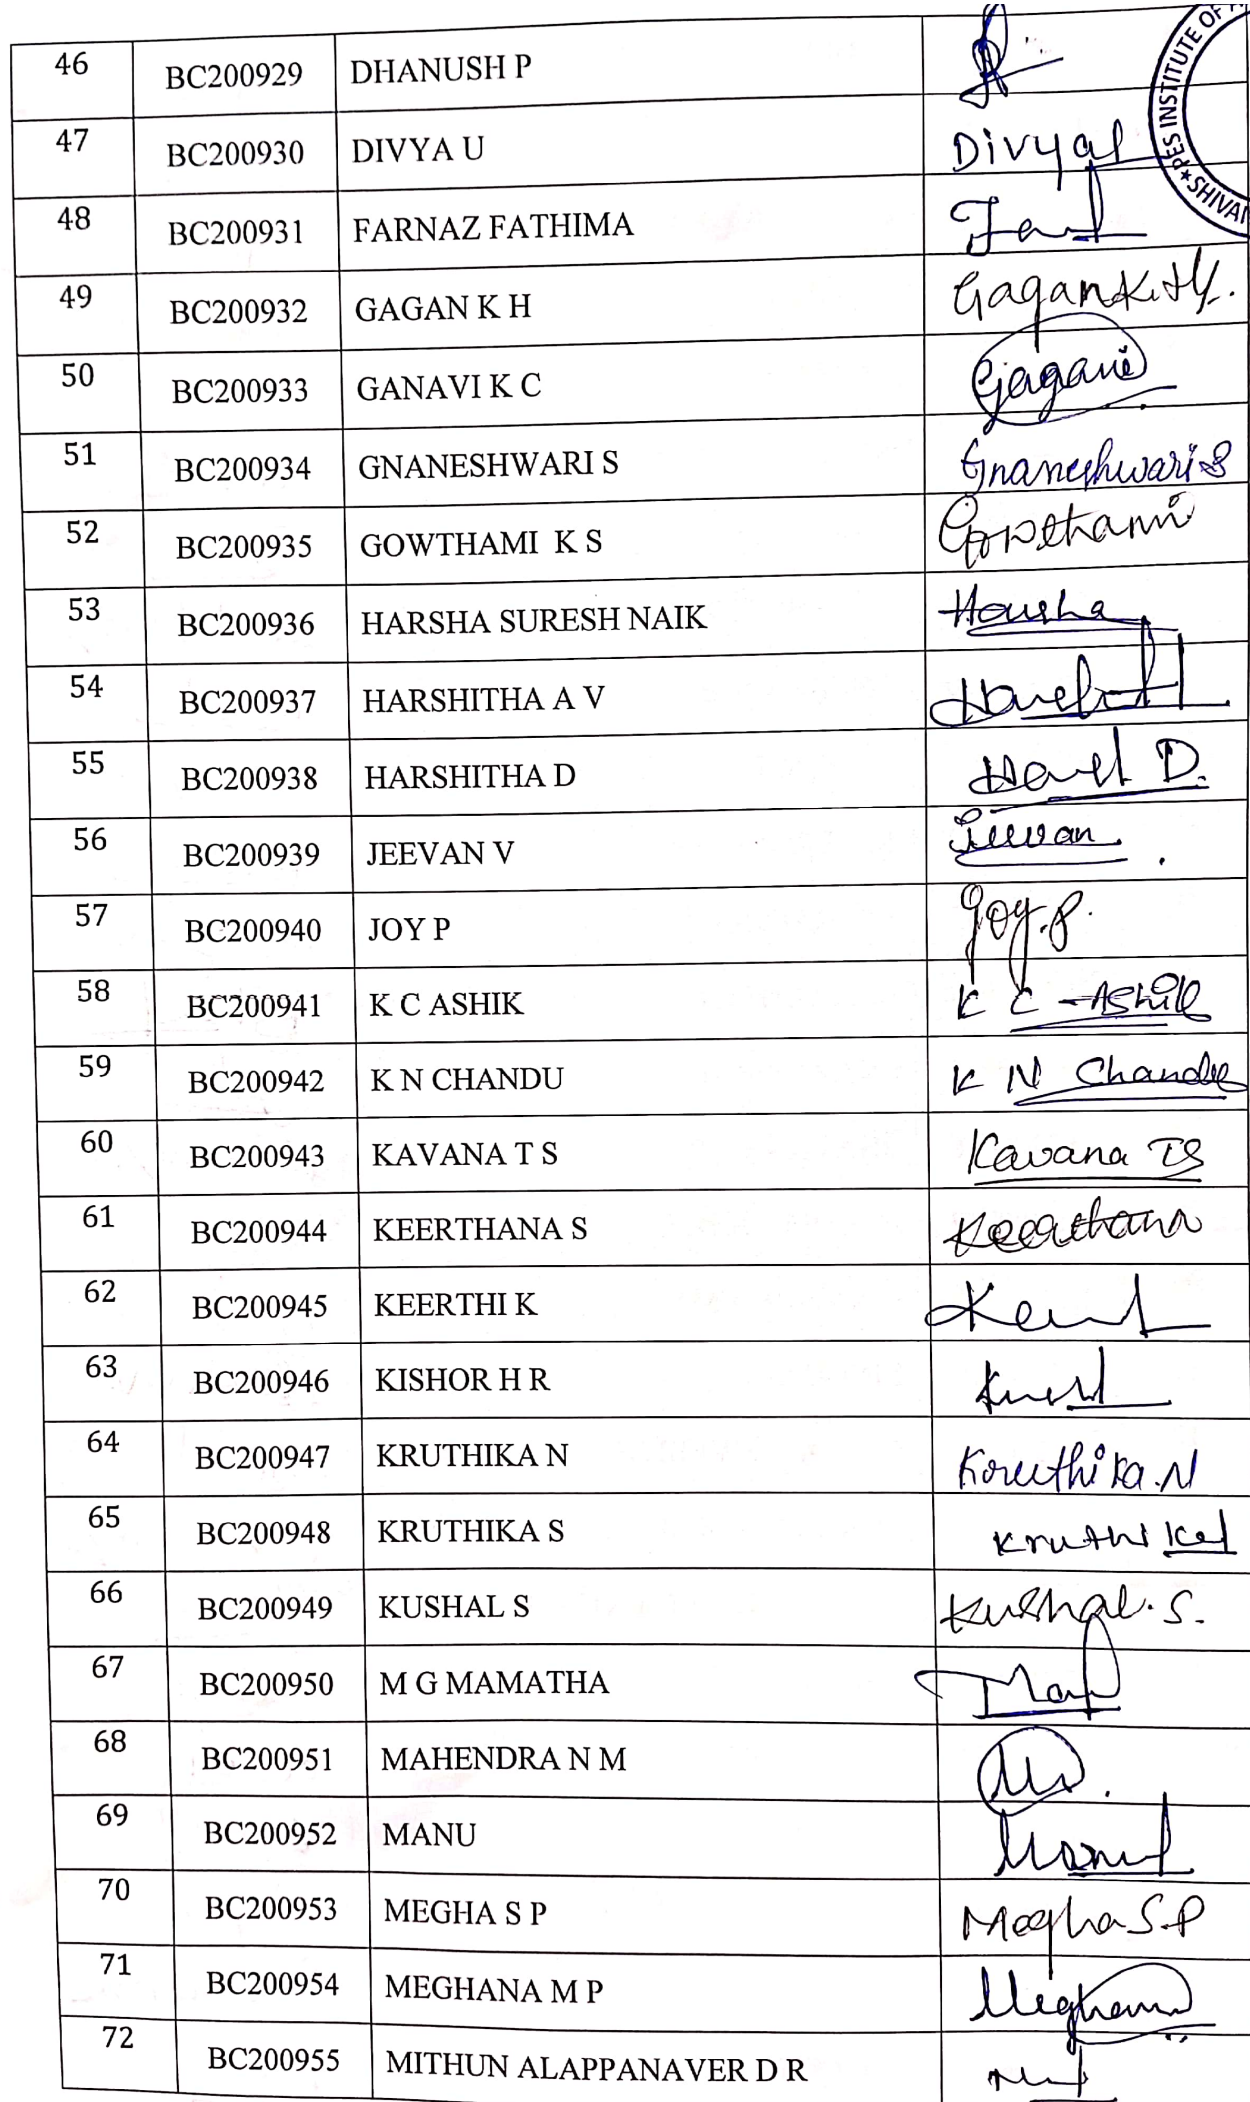 46 BC200929 DHANUSH P
PES INSTITUTE OF
★SHIVA
47 BC200930 DIVYA U Divya
48 BC200931 FARNAZ FATHIMA
49 BC200932 GAGAN K H Gagan K.H.
50 BC200933 GANAVI K C
51 BC200934 GNANESHWARI S Gnaneshwari S
52 BC200935 GOWTHAMI K S Gowthami
53 BC200936 HARSHA SURESH NAIK Harsha
54 BC200937 HARSHITHA A V
55 BC200938 HARSHITHA D D.
56 BC200939 JEEVAN V Jeevan
57 BC200940 JOY P Joy.P.
58 BC200941 K C ASHIK K C Ashik
59 BC200942 K N CHANDU K N Chandu
60 BC200943 KAVANA T S Kavana TS
61 BC200944 KEERTHANA S Keerthana
62 BC200945 KEERTHI K
63 BC200946 KISHOR H R
64 BC200947 KRUTHIKA N Kruthika.N
65 BC200948 KRUTHIKA S Kruthika
66 BC200949 KUSHAL S Kushal.S.
67 BC200950 M G MAMATHA
68 BC200951 MAHENDRA N M
69 BC200952 MANU Manu
70 BC200953 MEGHA S P Megha S.P
71 BC200954 MEGHANA M P Meghana
72 BC200955 MITHUN ALAPPANAVER D R